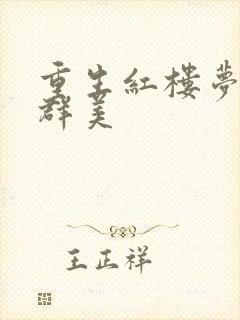 重生紅樓夢
群美
王正祥